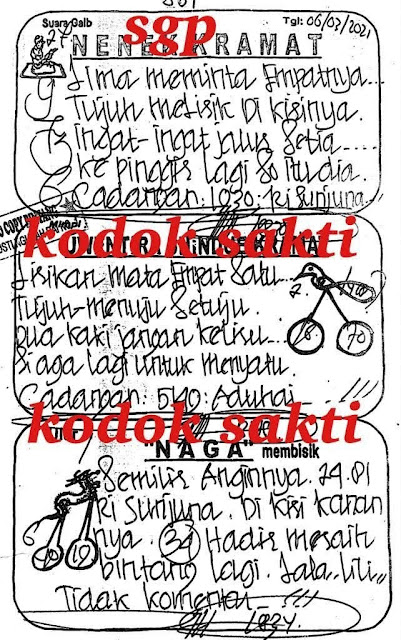 Suara Gaib
Tgl: 06/02/2021
NENEK KRAMAT
sgp
Lima meminta Empatnya...
Tujuh melisik Di kisinya.
Ingat-ingat jalur Setia.....
ke pinggis lagi So itu dia.
Cadangan: 1030: ki Sunjuna
kodok sakti
Lisikan mata Empat Satu....
Tujuh-menuju Setuju.
Dua kaki jangan keliru...
Siaga lagi untuk menyatu.
Cadangan: 5190: Aduhai...!!!
70
kodok sakti
"NAGA" membisik
Semilir Anginnya. 24.01
ki Sunjuna. Di kisi kanan
nya. 34 Hadir mesaih
bintang lagi. Lala..Lili,,
Tidak komentar...!!!
19